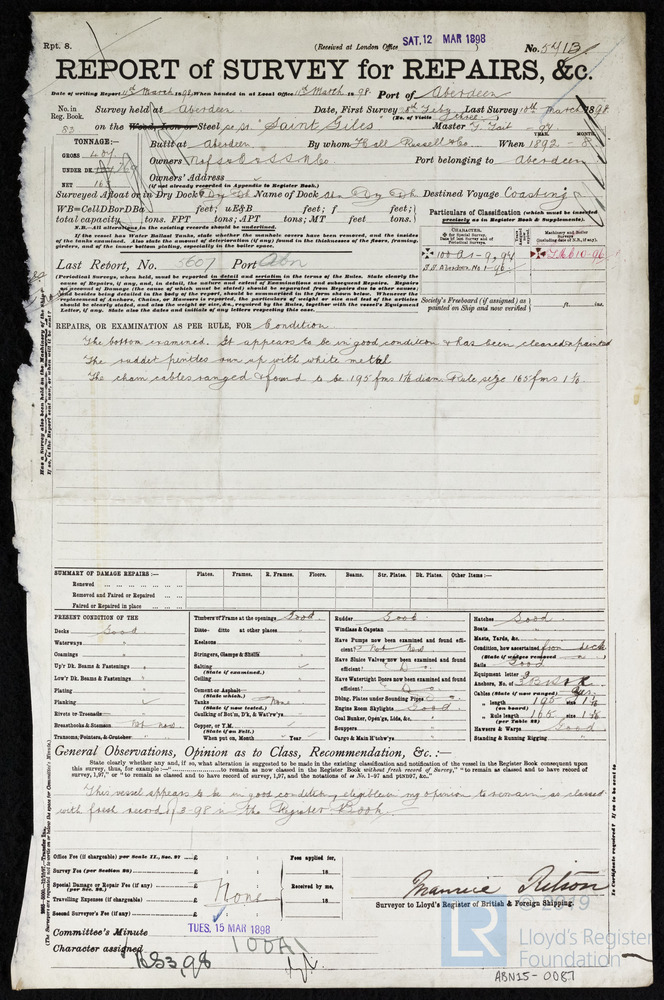 Rpt. 8.
(Received at London Office
SAT. 12 MAR 1898
No. 5413
REPORT of SURVEY for REPAIRS, &c.
Date of writing Report 11th March 1898 When handed in at Local Office 11th March 1898 Port of Aberdeen
No. in Reg. Book. Survey held at Aberdeen Date, First Survey 8th Feby Last Survey 10th March 1898
(No. of Visits three)
83 on the Wood, Iron or Steel "Saint Giles" Master J. Tait
YEAR. MONTH.
TONNAGE:— Built at Aberdeen By whom Hall Russell & Co When 1892 - 8
GROSS 407
UNDER DK.
NET
Owners Port belonging to Aberdeen
Owners' Address
(if not already recorded in Appendix to Register Book.)
Surveyed Afloat or in Dry Dock? Dry Dk Name of Dock Abn Dry Dk Destined Voyage Coasting
WB=CellDBorDBa feet; uE&B feet; f feet;
total capacity tons. FPT tons; APT tons; MT feet tons.
N.B.—All alterations in the existing records should be underlined.
If the vessel has Water Ballast Tanks, state whether the manhole covers have been removed, and the insides
of the tanks examined. Also state the amount of deterioration (if any) found in the thicknesses of the floors, framing,
girders, and of the inner bottom plating, especially in the boiler space.
Particulars of Classification (which must be inserted
precisely as in Register Book & Supplements).
CHARACTER.
Machinery and Boiler Surveys
(including date of N.B., if any).
100 A1 - 9,94
S.S. Aberdeen No 1 - 96
Last Report, No. 5607 Port Abn
(Periodical Surveys, when held, must be reported in detail and seriatim in the terms of the Rules. State clearly the
cause of Repairs, if any, and, in detail, the nature and extent of Examinations and subsequent Repairs. Repairs
on account of Damage (the cause of which must be stated) should be separated from Repairs due to other causes;
and besides being detailed in the body of the report, should be summarized in the form shown below. Whenever the
replacement of Anchors, Chains, or Hawsers is reported, the particulars of weight or size and test of the articles
should be clearly stated, and also the weight or size, &c., required by the Rules, together with the vessel's Equipment
Letter, if any. State also the dates and initials of any letters respecting this case.
Society's Freeboard (if assigned) as
painted on Ship and now verified
ft. ins.
REPAIRS, OR EXAMINATION AS PER RULE, FOR Condition
The bottom examined. It appears to be in good condition & has been cleaned & painted
The rudder pintles run up with white metal
The chain cables ranged & found to be 195 fms 1 5/16 diam. Rule size 165 fms 1 5/16
SUMMARY OF DAMAGE REPAIRS:— Plates. Frames. R. Frames. Floors. Beams. Str. Plates. Dk. Plates. Other Items:—
Renewed
Removed and Faired or Repaired
Faired or Repaired in place
PRESENT CONDITION OF THE
Decks Good
Waterways "
Coamings "
Up'r Dk. Beams & Fastenings "
Low'r Dk. Beams & Fastenings
Plating "
Planking
Rivets or Treenails
Breasthooks & Stemson Not now
Transoms, Pointers, & Crutches
Timbers or Frame at the openings Good
Ditto ditto at other places
Keelsons
Stringers, Clamps & Shelfs
Salting
(State if examined.)
Ceiling
Cement or Asphalt
(State which.)
Tanks None
(State if now tested.)
Caulking of Bot'm, D'k, & Wat'rw'ys
Copper, or Y.M.
(State if on Felt.)
When put on, Month Year
Rudder Good
Windlass & Capstan "
Have Pumps now been examined and found efficient? Not now
Have Sluice Valves now been examined and found efficient? Do
Have Watertight Doors now been examined and found efficient? Do
Dblng. Plates under Sounding Pipes
Engine Room Skylights Good
Coal Bunker, Open'gs, Lids, &c. "
Scuppers "
Cargo & Main H'tchw'ys "
Hatches Good
Boats "
Masts, Yards, &c. "
Condition, how ascertained from deck
(State if wedges removed)
Sails Good
Equipment letter
Anchors, No. of
Cables (State if now ranged)
" length 195 size 1 5/16
(on board)
" Rule length 165 size 1 5/16
(per Table 22)
Hawsers & Warps Good
Standing & Running Rigging "
General Observations, Opinion as to Class, Recommendation, &c. :—
State clearly whether any and, if so, what alteration is suggested to be made in the existing classification and notification of the vessel in the Register Book consequent upon
this survey, thus, for example:—" to remain as now classed in the Register Book without fresh record of Survey," "to remain as classed and to have record of
survey, 1,97," or "to remain as classed and to have record of survey, 1,97, and the notations of ss No. 1-97 and ptNB97, &c."
This vessel appears to be in good condition, eligible in my opinion to remain as classed
with fresh record of 3.98 in the Register Book.
Office Fee (if chargeable) per Scale II., Sec. 27 £
Survey Fee (per Section 28) £
Special Damage or Repair Fee (if any) £
(per Sec. 28.)
Travelling Expenses (if chargeable) £
Second Surveyor's Fee (if any) £
None
Fees applied for,
18
Received by me,
18
Maurice Ritson
Surveyor to Lloyd's Register of British & Foreign Shipping.
Committee's Minute TUES. 15 MAR 1898
Character assigned 100A1
BS3,98
LR
© 2019
Lloyd's Register
Foundation
ABN15-0087